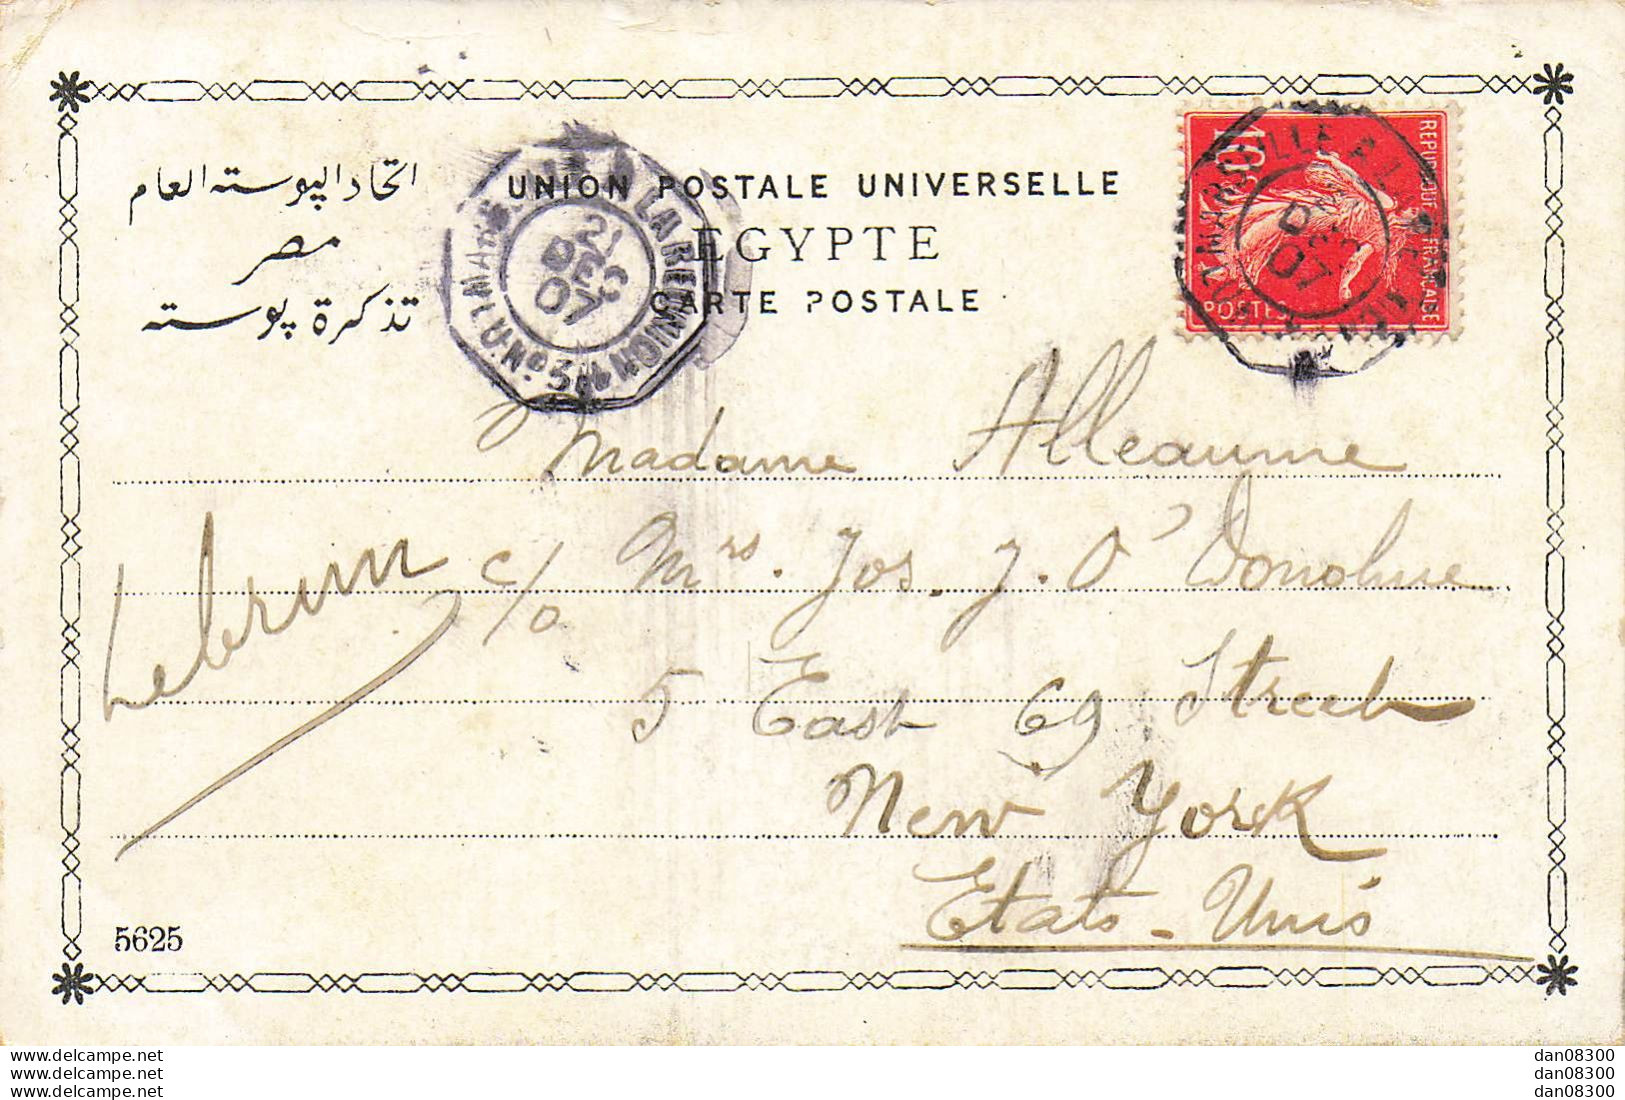 اتحاد البوسته العام
مصر
تذكرة پوسته
UNION POSTALE UNIVERSELLE
EGYPTE
CARTE POSTALE
LA REUNION
L.U.Nº3
21
DEC
07
REPUBLIQUE FRANCAISE
10c
POSTES
MARSEILLE A LA
DEC
07
Madame Alleaume
Lebrun
c/o Mrs. Jos. J. O'Donohue
5 East 69 Street
New York
Etats-Unis
5625
www.delcampe.net
www.delcampe.net
www.delcampe.net
dan08300
dan08300
dan08300